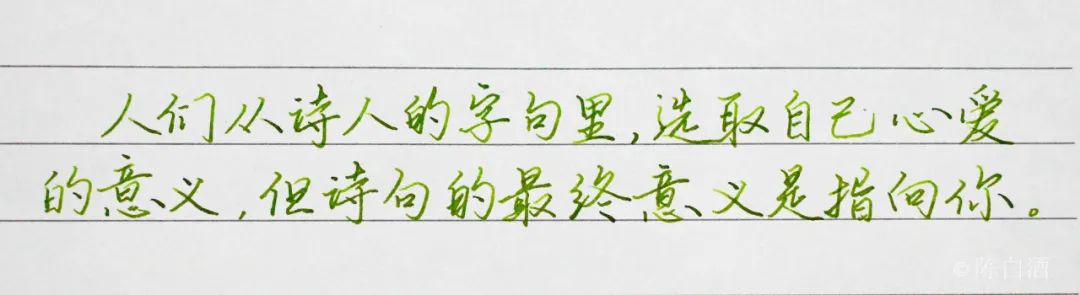 人们从诗人的字句里,选取自己心爱
的意义,但诗句的最终意义是指向你。
©陈白酒